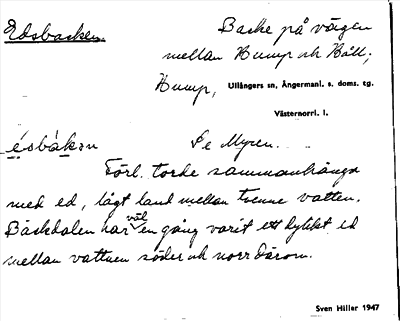 Edsbacken.
Backe på vägen
mellan Hump och Båll;
Hump, Ullångers sn, Ångermanl. s. doms. tg.
Västernorrl. l.
ésbàkən Se Myren.
Förl. torde sammanhänga
med ed, lågt land mellan tvenne vatten.
Bäckdalen har väl en gång varit ett dylikt ed
mellan vattnen söder och norr därom.
Sven Hiller 1947